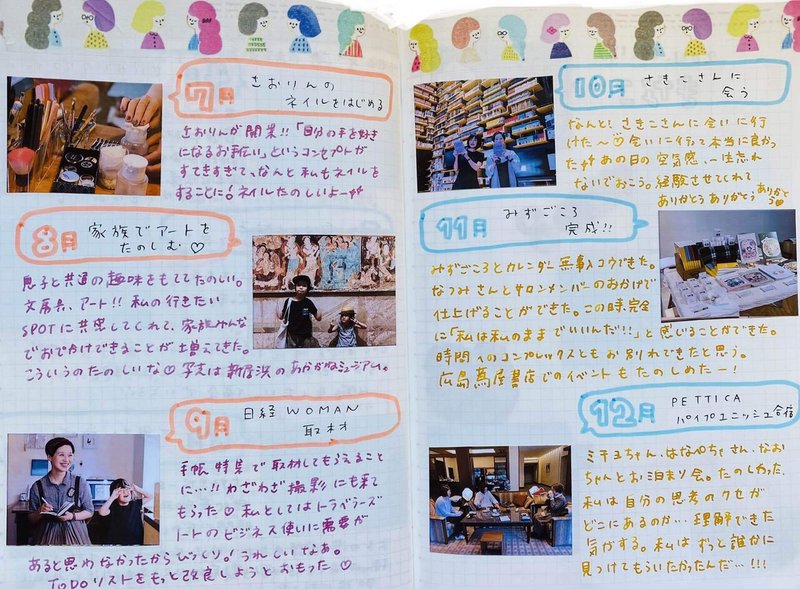 7月 さおりんの
ネイルをはじめる
さおりんが開業!!「自分の手を好き
になるお手伝い」というコンセプトが
すてきすぎて、なんと私もネイルを
することに!ネイルたのしいよー
8月 家族でアートを
たのしむ♡
息子と共通の趣味をもててたのしい。
文房具、アート!!私の行きたい
SPOTに共感してくれて、家族みんな
でおでかけできることが増えてきた。
こういうのたのしいな♡写真は新居浜のあかがねミュージアム。
9月 日経WOMAN
取材
手帳特集で取材してもらえること
に…!!わざわざ撮影にも来て
もらった♡私としてはトラベラーズ
ノートのビジネス使いに需要が
あると思わなかったからびっくり!うれしいなあ。
TODOリストをもっと改良しようとおもった♡
10月 さきこさんに
会う
なんと!さきこさんに会いに行
けた〜♡会いに行って本当に良かっ
た あの日の空気感、一生忘れ
ないでおこう。経験させてくれて
ありがとうありがとうありがとう♡
11月 みずごころ
完成!!
みずごころとカレンダー無事入コウできた。
なつみさんとサロンメンバーのおかげで
仕上げることができた。この時、完全
に「私は私のままでいいんだ!!」と感じることができた。
時間へのコンプレックスともお別れできたと思う。
広島蔦屋書店でのイベントもたのしめたー!
12月 PETTICA
パイプユニッシュ合宿
ミチョちゃん、はなぺちゃさん、なお
ちゃんとお泊まり会。たのしかった。
私は自分の思考のクセが
どこにあるのか…理解できた
気がする。私はずっと誰かに
見つけてもらいたかったんだ…!!!